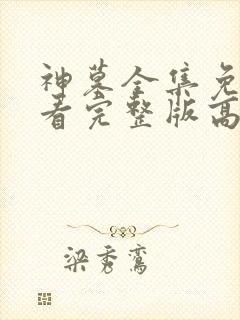 神墓全集免
看完整版高
梁秀鸾